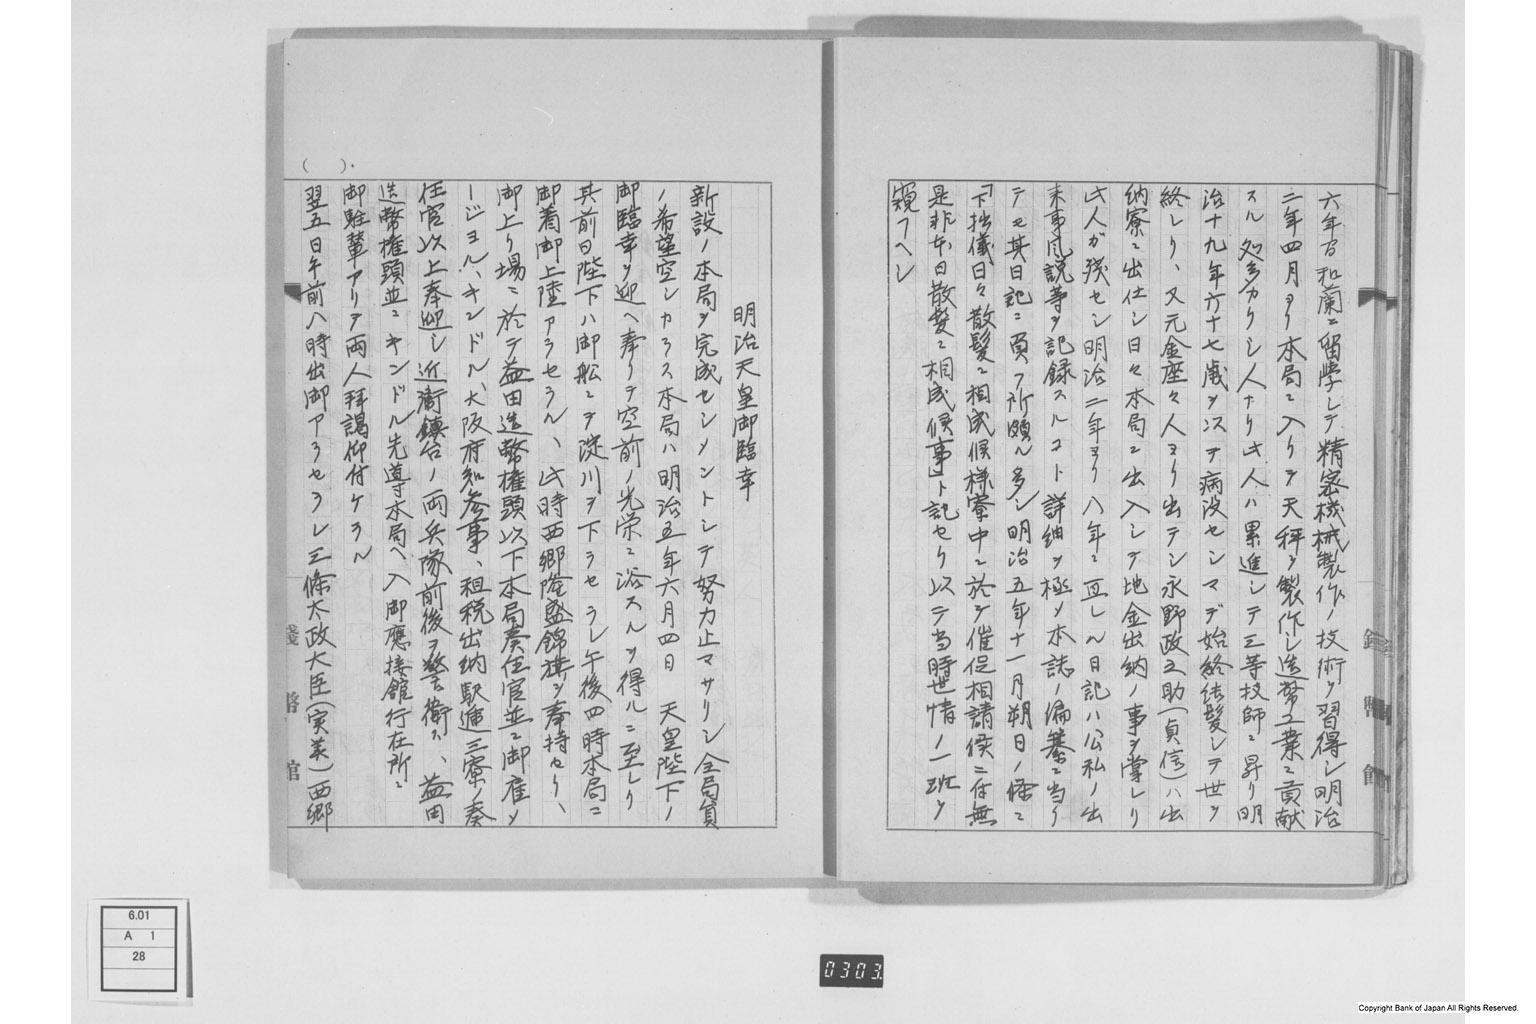 六年間和蘭ニ留學シテ精密機械製作ノ技術ヲ習得シ明治
二年四月ヨリ本局ニ入リテ天秤ヲ製作シ造幣工業ニ貢献
スル処多カリシ人ナリ此人ハ累進シテ三等技師ニ昇リ明
治十九年六十七歳ヲ以テ病没センマデ始終結髪シテ世ヲ
終レリ、又元金座々人ヨリ出テシ永野政之助(貞信)ハ出
納寮ニ出仕シ日々本局ニ出入シテ地金出納ノ事ヲ掌レリ
此人ガ残セシ明治二年ヨリ八年ニ亙レル日記ハ公私ノ出
来事風説等ヲ記録スルコト詳細ヲ極メ本誌ノ編纂ニ当リ
テモ其日記ニ負フ所頗ル多シ明治五年十一月朔日ノ條ニ
「下拙儀日々散髪ニ相成候様寮中ニ於テ催促相請候ニ付無
是非本日散髪ニ相成候事」ト記セリ以テ当時世情ノ一班ヲ
窺フヘシ
明治天皇御臨幸
新設ノ本局ヲ完成センメントシテ努力止マサリシ全局員
ノ希望空シカラス本局ハ明治五年六月四日 天皇陛下ノ
御臨幸ヲ迎ヘ奉リテ空前ノ光栄ニ浴スルヲ得ルニ至レリ
其前日陛下ハ御船ニテ淀川ヲ下ラセラレ午後四時本局ニ
御着御上陸アラセラル、此時西郷隆盛錦旗ヲ奉持セリ、
御上り場ニ於テ益田造幣権頭以下本局奏任官並ニ御雇メ
ージヨル、キンドル、大阪府知参事、租税出納駅逓三寮ノ奏
任官以上奉迎シ近衛鎮台ノ両兵隊前後ヲ警衛ス、益田
造幣権頭並ニキンドル先導本局ヘ入御應接館行在所ニ
御駐輦アリテ両人拝謁仰付ケラル
翌五日午前八時出御アラセラレ三條太政大臣(実美)西郷
( )
錢幣館
錢幣館
6.01
A 1
28
0303.
Copyright Bank of Japan All Rights Reserved.